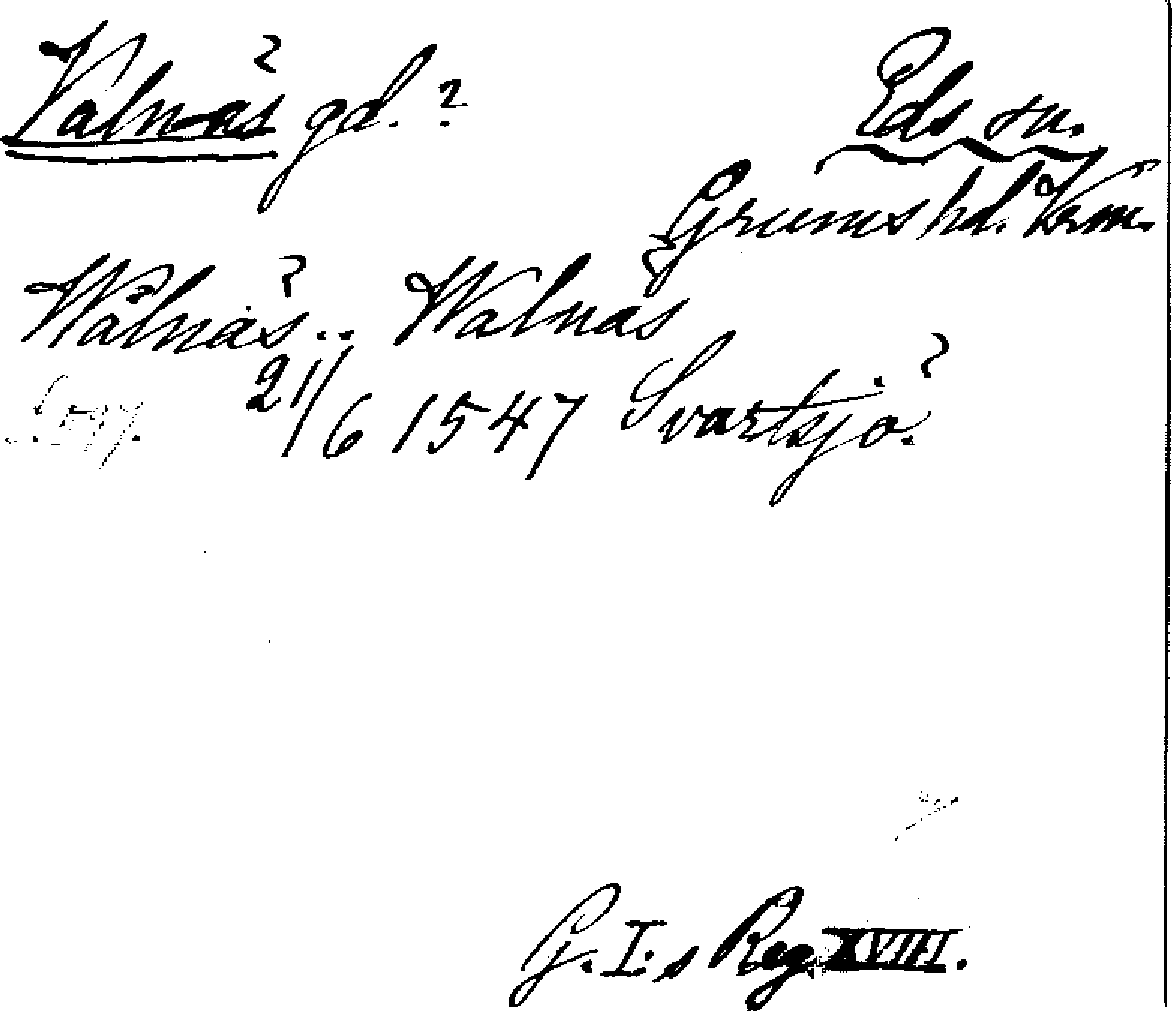 Valnäs gd.? Eds sn.
Grums hd. Vrm.
Wålnäs.. Walnäs
21/6 1547 Svartsjö.
G. I:s Reg. XVIII.